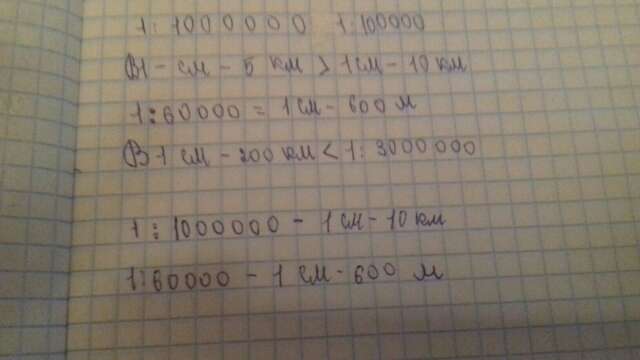 1 : 1000000 1 : 100000
В1 - см - 5 км > 1 см - 10 км
1 : 60000 = 1 см - 600 м
В 1 см - 200 км < 1 : 3000000
1 : 1000000 - 1 см - 10 км
1 : 60000 - 1 см - 600 м